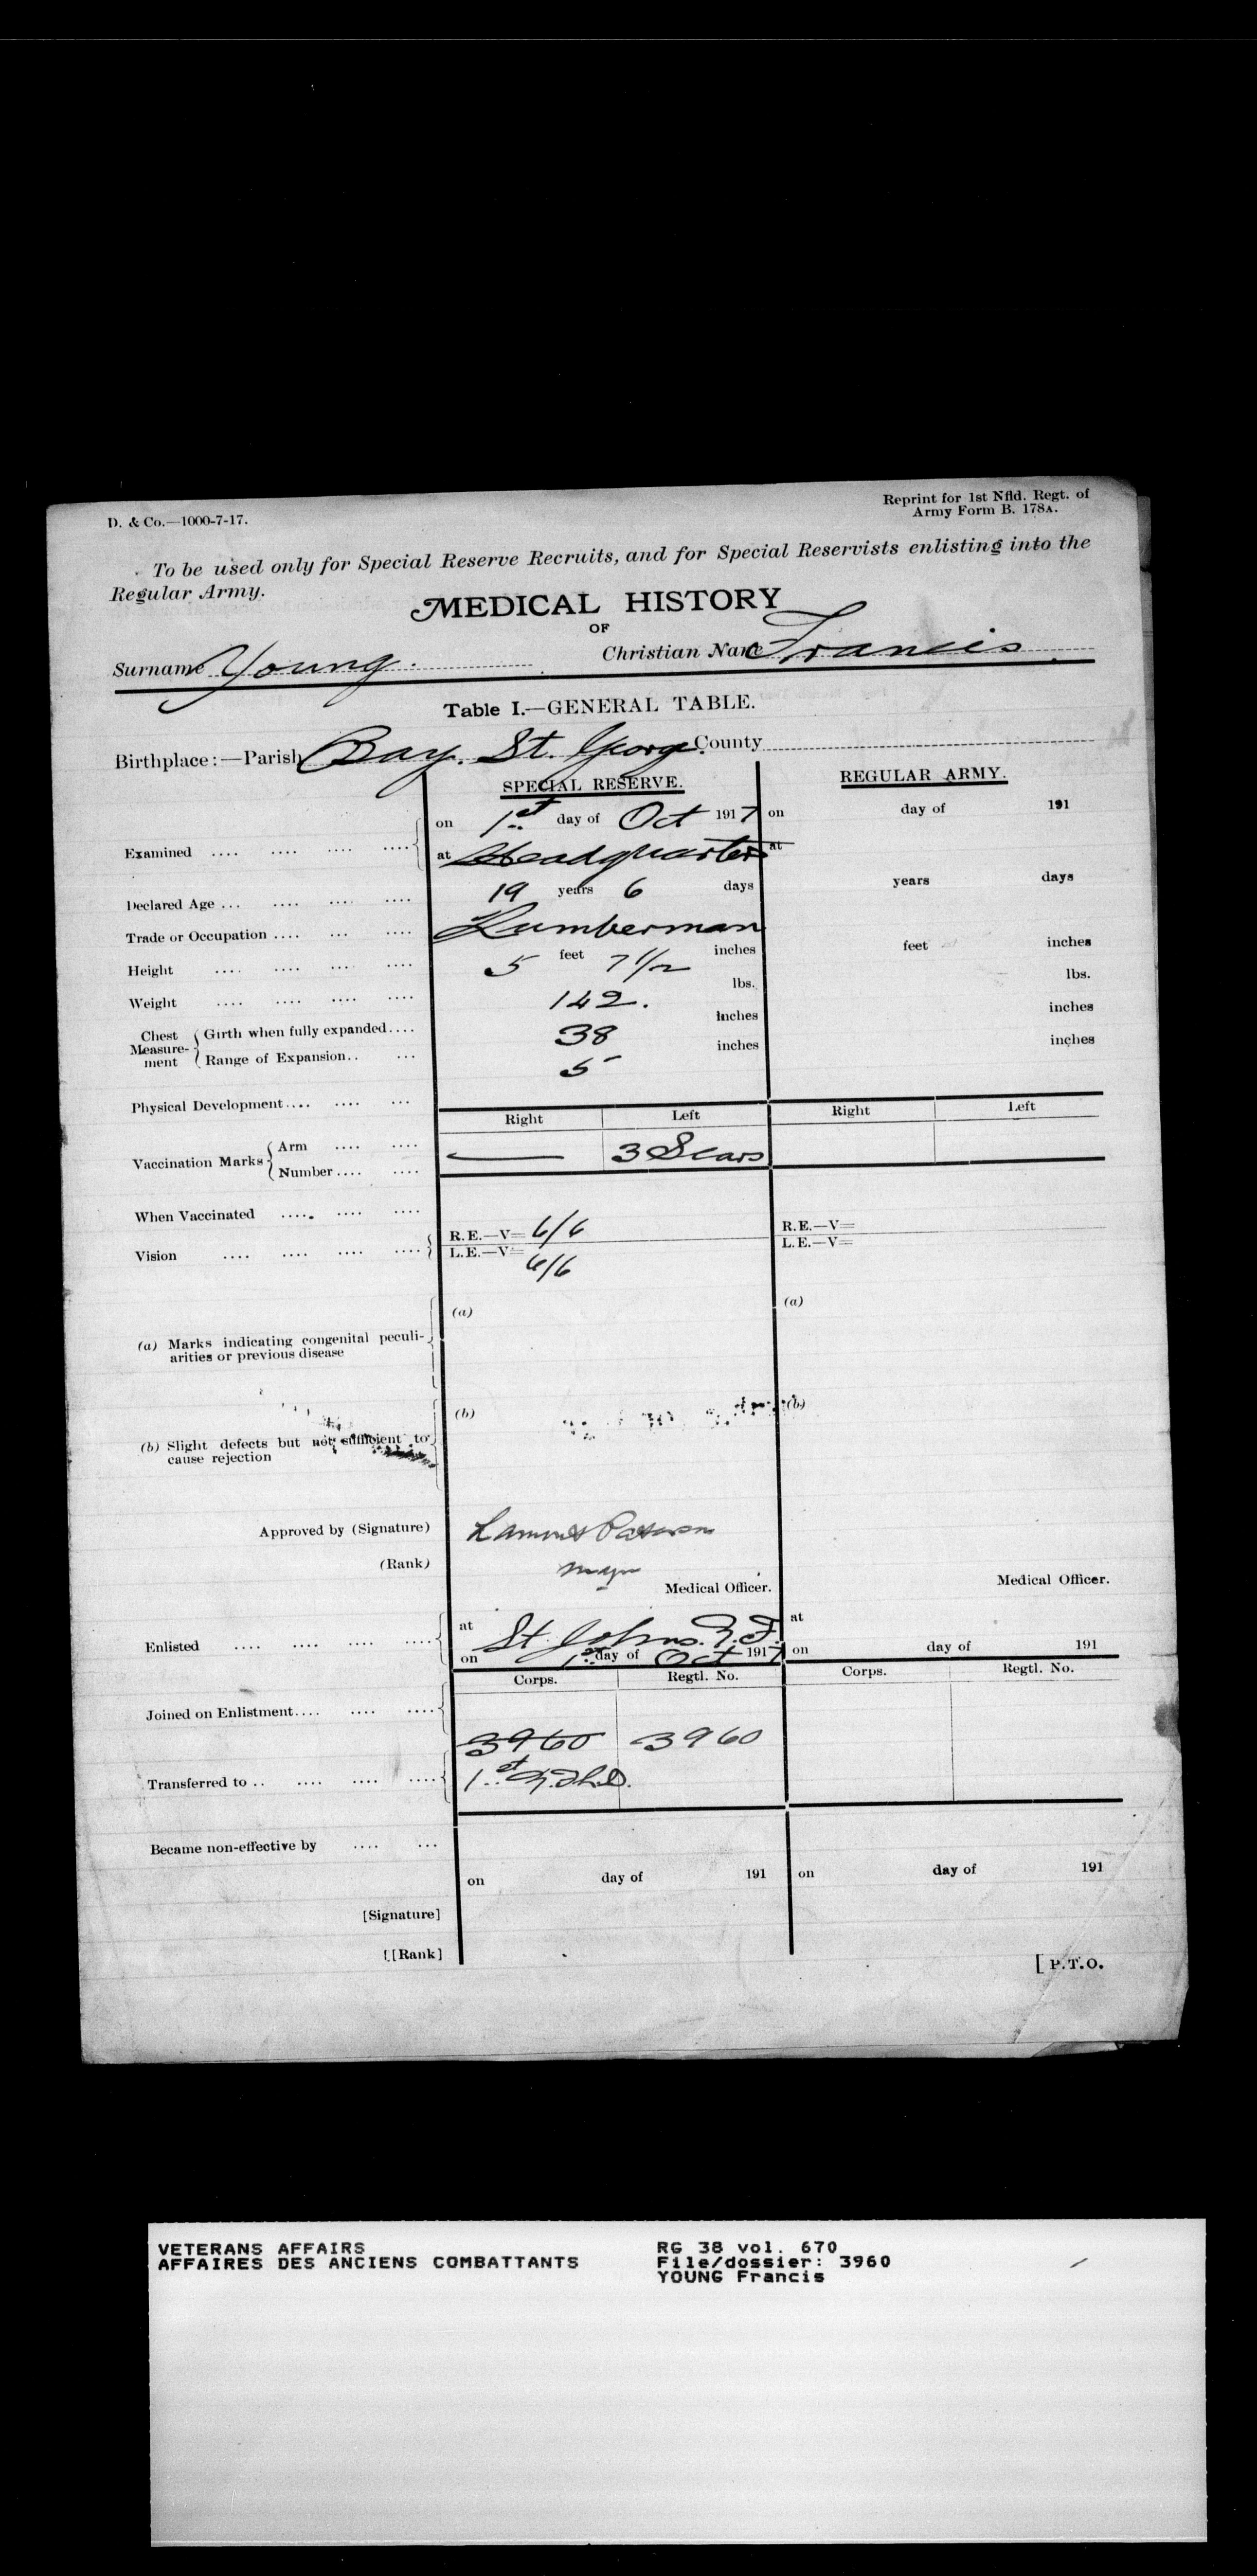 D. & Co.—1000-7-17.
Reprint for 1st Nfld. Regt. of
Army Form B. 178A.
To be used only for Special Reserve Recruits, and for Special Reservists enlisting into the
Regular Army.
MEDICAL HISTORY
OF
Surname Young. Christian Name Francis.
Table I.—GENERAL TABLE.
Birthplace:—Parish Bay. St. George. County
SPECIAL RESERVE. REGULAR ARMY.
Examined .... .... .... .... on 1st day of Oct 1917 on day of 191
at Headquarters at
Declared Age ... .... .... .... 19 years 6 days years days
Trade or Occupation .... ... .... Lumberman
Height .... .... .... .... 5 feet 7 1/2 inches feet inches
Weight .... .... .... .... 142. lbs. lbs.
Chest Measurement Girth when fully expanded.... 38 inches inches
Range of Expansion.. ... 5 inches inches
Physical Development.... .... ...
Right Left Right Left
Vaccination Marks Arm .... .... — 3 Scars
Number .... ....
When Vaccinated .... .... ....
Vision .... .... .... .... R.E.—V= 6/6 R.E.—V=
L.E.—V= 6/6 L.E.—V=
(a) (a)
(a) Marks indicating congenital peculi-
arities or previous disease
(b) (b)
(b) Slight defects but not sufficient to
cause rejection
Approved by (Signature) Paterson
(Rank) Major
Medical Officer. Medical Officer.
Enlisted .... .... .... .... at St. Johns. N.F. at
on 1st day of Oct 1917 on day of 191
Corps. Regtl. No. Corps. Regtl. No.
Joined on Enlistment.... .... ....
3960 3960
Transferred to .. .... .... .... 1st
Became non-effective by .... ...
on day of 191 on day of 191
[Signature]
[Rank]
[P.T.O.
VETERANS AFFAIRS RG 38 vol. 670
AFFAIRES DES ANCIENS COMBATTANTS File/dossier: 3960
YOUNG Francis